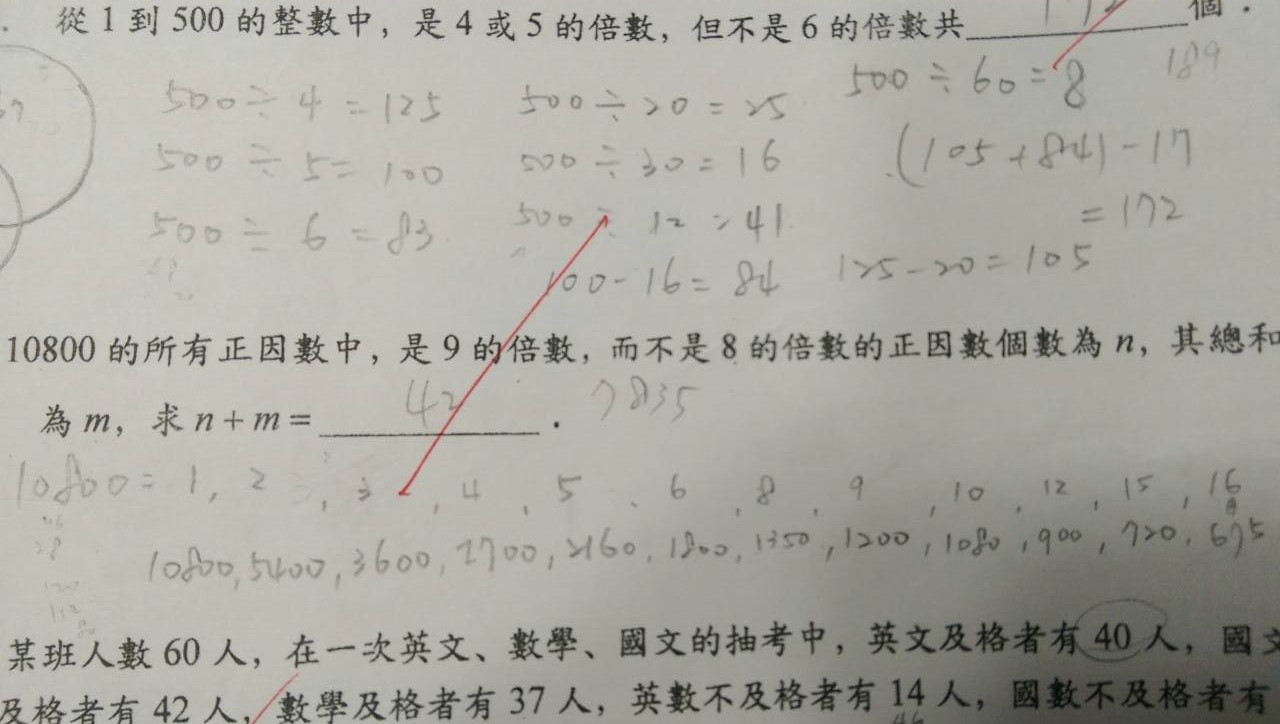 從 1 到 500 的整數中，是 4 或 5 的倍數，但不是 6 的倍數共 個．
500 ÷ 4 = 125 500 ÷ 20 = 25 500 ÷ 60 = 8 189
500 ÷ 5 = 100 500 ÷ 30 = 16 (105 + 84) - 17
500 ÷ 6 = 83 500 ÷ 12 = 41 = 172
100 - 16 = 84 125 - 20 = 105
10800 的所有正因數中，是 9 的倍數，而不是 8 的倍數的正因數個數為 n，其總和
為 m，求 n + m = 42 ． 7835
10800 = 1, 2, 3, 4, 5, 6, 8, 9, 10, 12, 15, 16
10800, 5400, 3600, 2700, 2160, 1800, 1350, 1200, 1080, 900, 720, 675
某班人數 60 人，在一次英文、數學、國文的抽考中，英文及格者有 40 人，國文
及格者有 42 人，數學及格者有 37 人，英數不及格者有 14 人，國數不及格者有